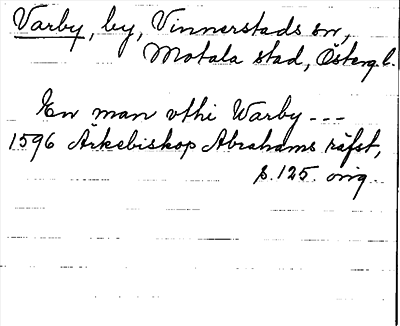 Varby, by, Vinnerstads sn,
Motala stad, Östergl.
En man vthi Warby ---
1596 Ärkebiskop Abrahams räfst,
s. 125. orig.